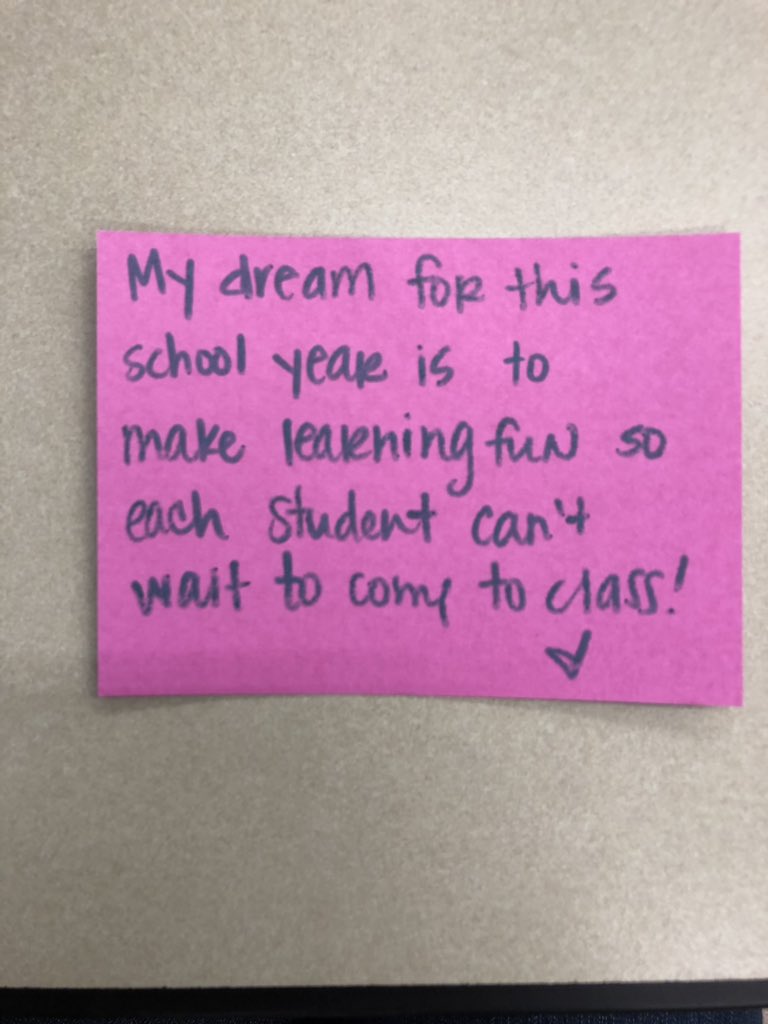 My dream for this
school year is to
make learning fun so
each student can't
wait to come to class!